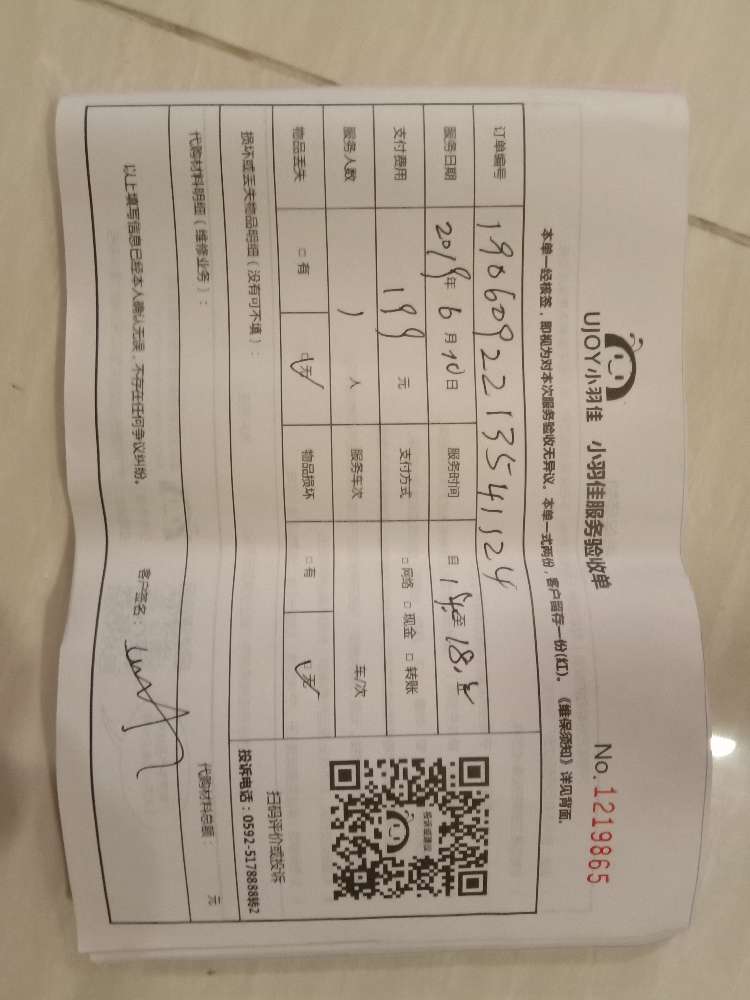 UJOY小羽佳 小羽佳服务验收单 No.1219865
本单一经核签，即视为对本次服务验收无异议。本单一式两份，客户留存一份(红)。《维保须知》详见背面。
订单编号 1906092213541124
服务日期 2019年6月10日 服务时间 自 至 止
支付费用 199元 支付方式 □网络 □现金 □转账
服务人数 1人 服务车次 车/次
物品丢失 □有 □无 物品损坏 □有 □无
损坏或丢失物品明细（没有可不填）：
扫码评价或投诉
投诉电话：0592-5178888转2
代购材料明细（维修业务）： 代购材料总额： 元
以上填写信息已经本人确认无误，不存在任何争议纠纷。 客户签名：